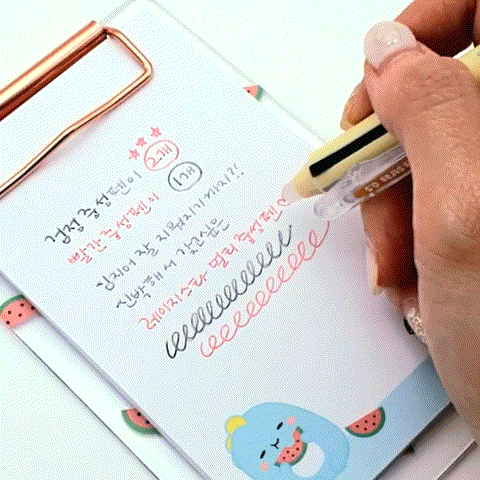 검정 중성펜이 2개
빨간 중성펜이 1개
심지어 잘 지워지기까지?!
신박해서 갖고싶은
레이지스타 멀티 중성펜♡